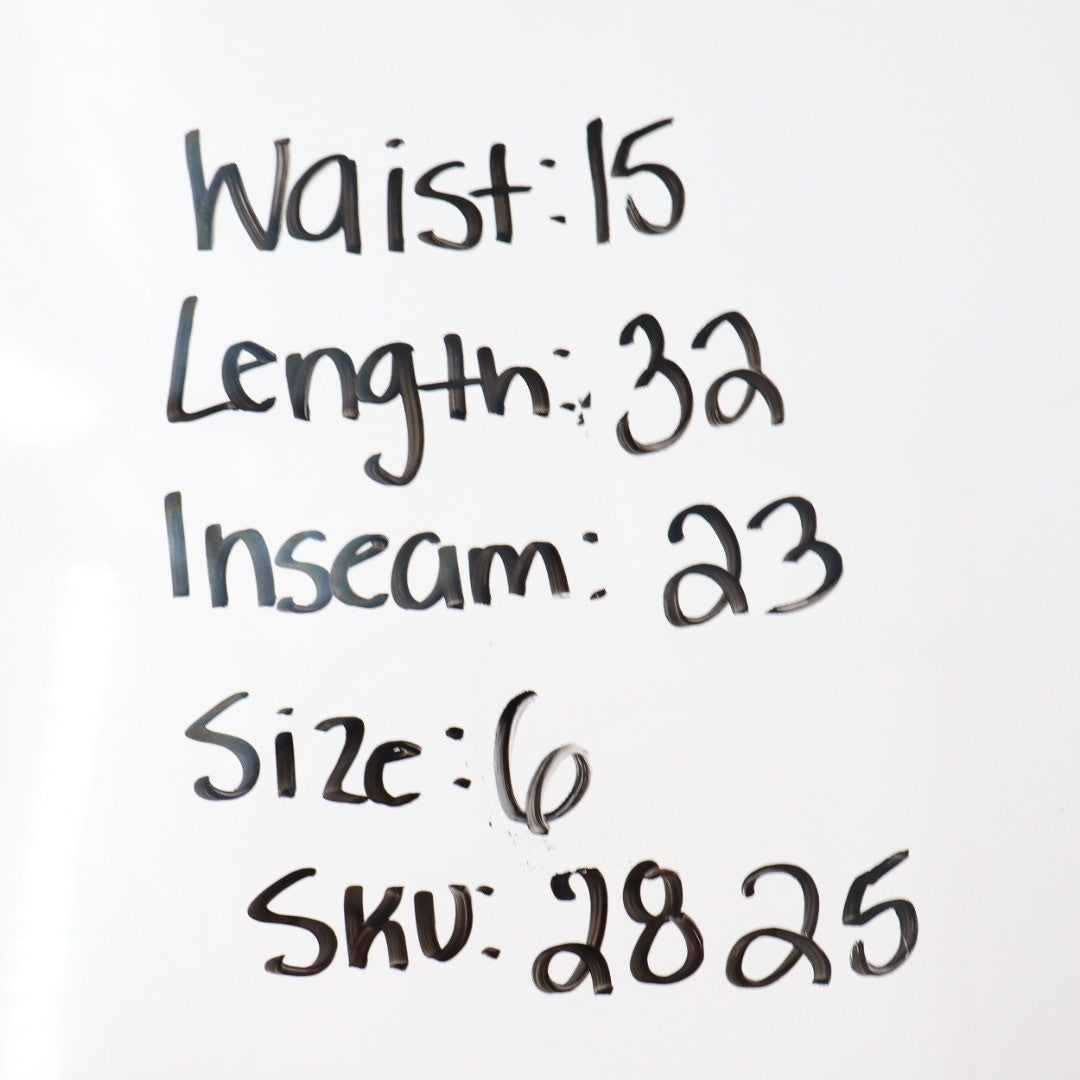 Waist: 15
Length: 32
Inseam: 23
Size: 6
SKU: 2825